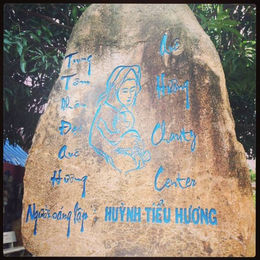 Trung
Tâm
Nhân
Đạo
Quê
Hương
Quê
Hương
Charity
Center
Người sáng lập : HUỲNH TIỂU HƯƠNG